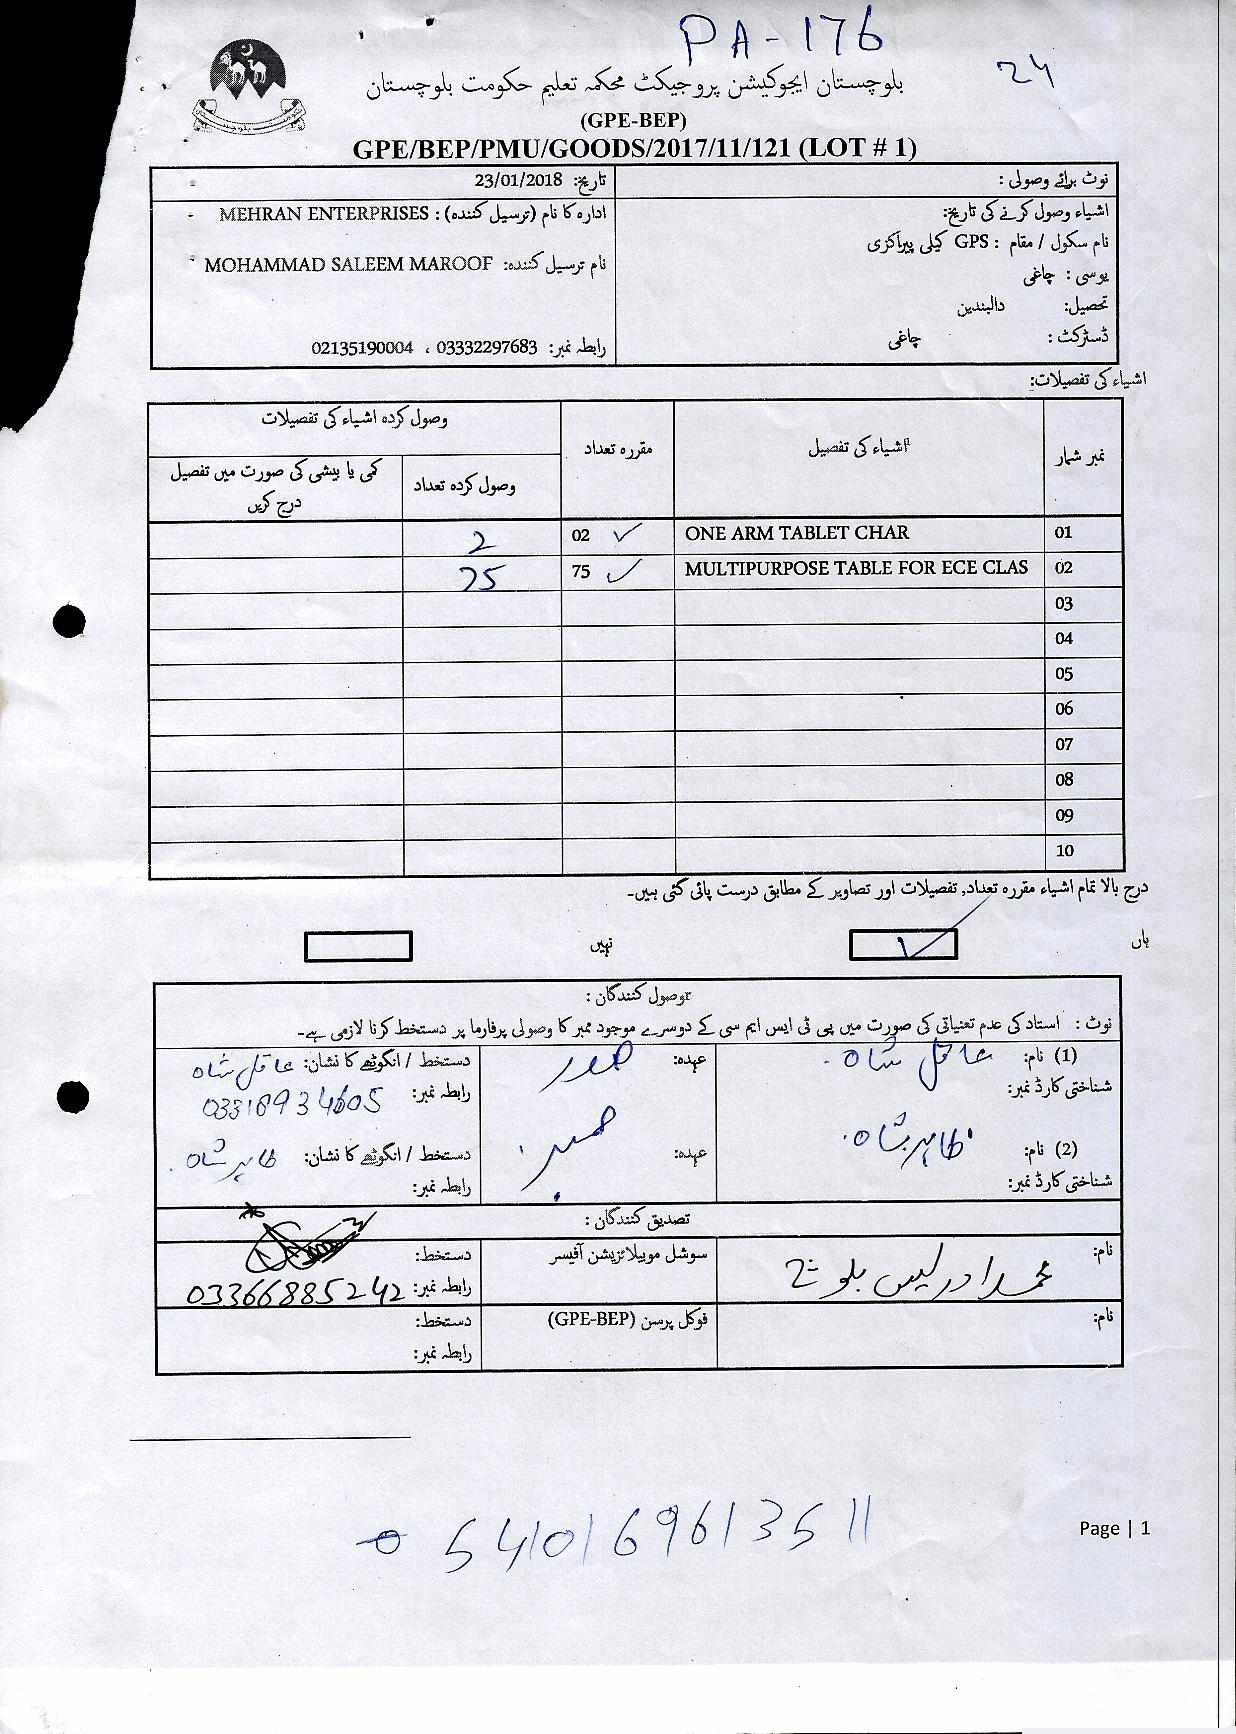 PA-176
24
بلوچستان ایجوکیشن پروجیکٹ محکمہ تعلیم حکومت بلوچستان
(GPE-BEP)
GPE/BEP/PMU/GOODS/2017/11/121 (LOT # 1)
نوٹ برائے وصولی :
تاریخ: 23/01/2018
اشیاء وصول کرنے کی تاریخ:
ادارہ کا نام (ترسیل کنندہ) : MEHRAN ENTERPRISES -
نام سکول / مقام : GPS کیلی پیراکزی
نام ترسیل کنندہ: MOHAMMAD SALEEM MAROOF
یوسی : چاغی
تحصیل: دالبندین
ڈسٹرکٹ : چاغی
رابطہ نمبر: 03332297683 ، 02135190004
اشیاء کی تفصیلات:
نمبر شمار اشیاء کی تفصیل مقررہ تعداد وصول کردہ اشیاء کی تفصیلات
وصول کردہ تعداد کمی یا بیشی کی صورت میں تفصیل
درج کریں
01 ONE ARM TABLET CHAR 02 ✓ 2
02 MULTIPURPOSE TABLE FOR ECE CLAS 75 ✓ 75
03
04
05
06
07
08
09
10
درج بالا تمام اشیاء مقررہ تعداد, تفصیلات اور تصاویر کے مطابق درست پائی گئی ہیں۔
ہاں ✓ نہیں
وصول کنندگان :
نوٹ : استاد کی عدم تعنیاتی کی صورت میں پی ٹی ایس ایم سی کے دوسرے موجود ممبر کا وصولی پرفارما پر دستخط کرنا لازمی ہے۔
(1) نام: عاقل شاہ عہدہ: صدر دستخط / انگوٹھے کا نشان: عاقل شاہ
شناختی کارڈ نمبر: رابطہ نمبر: 03318934605
(2) نام: طاہر شاہ عہدہ: ممبر دستخط / انگوٹھے کا نشان: طاہر شاہ
شناختی کارڈ نمبر: رابطہ نمبر:
تصدیق کنندگان :
نام: محمد ادریس بلوچ سوشل موبیلائزیشن آفیسر دستخط:
رابطہ نمبر: 03366885242
نام: فوکل پرسن (GPE-BEP) دستخط:
رابطہ نمبر:
540169613511
Page | 1